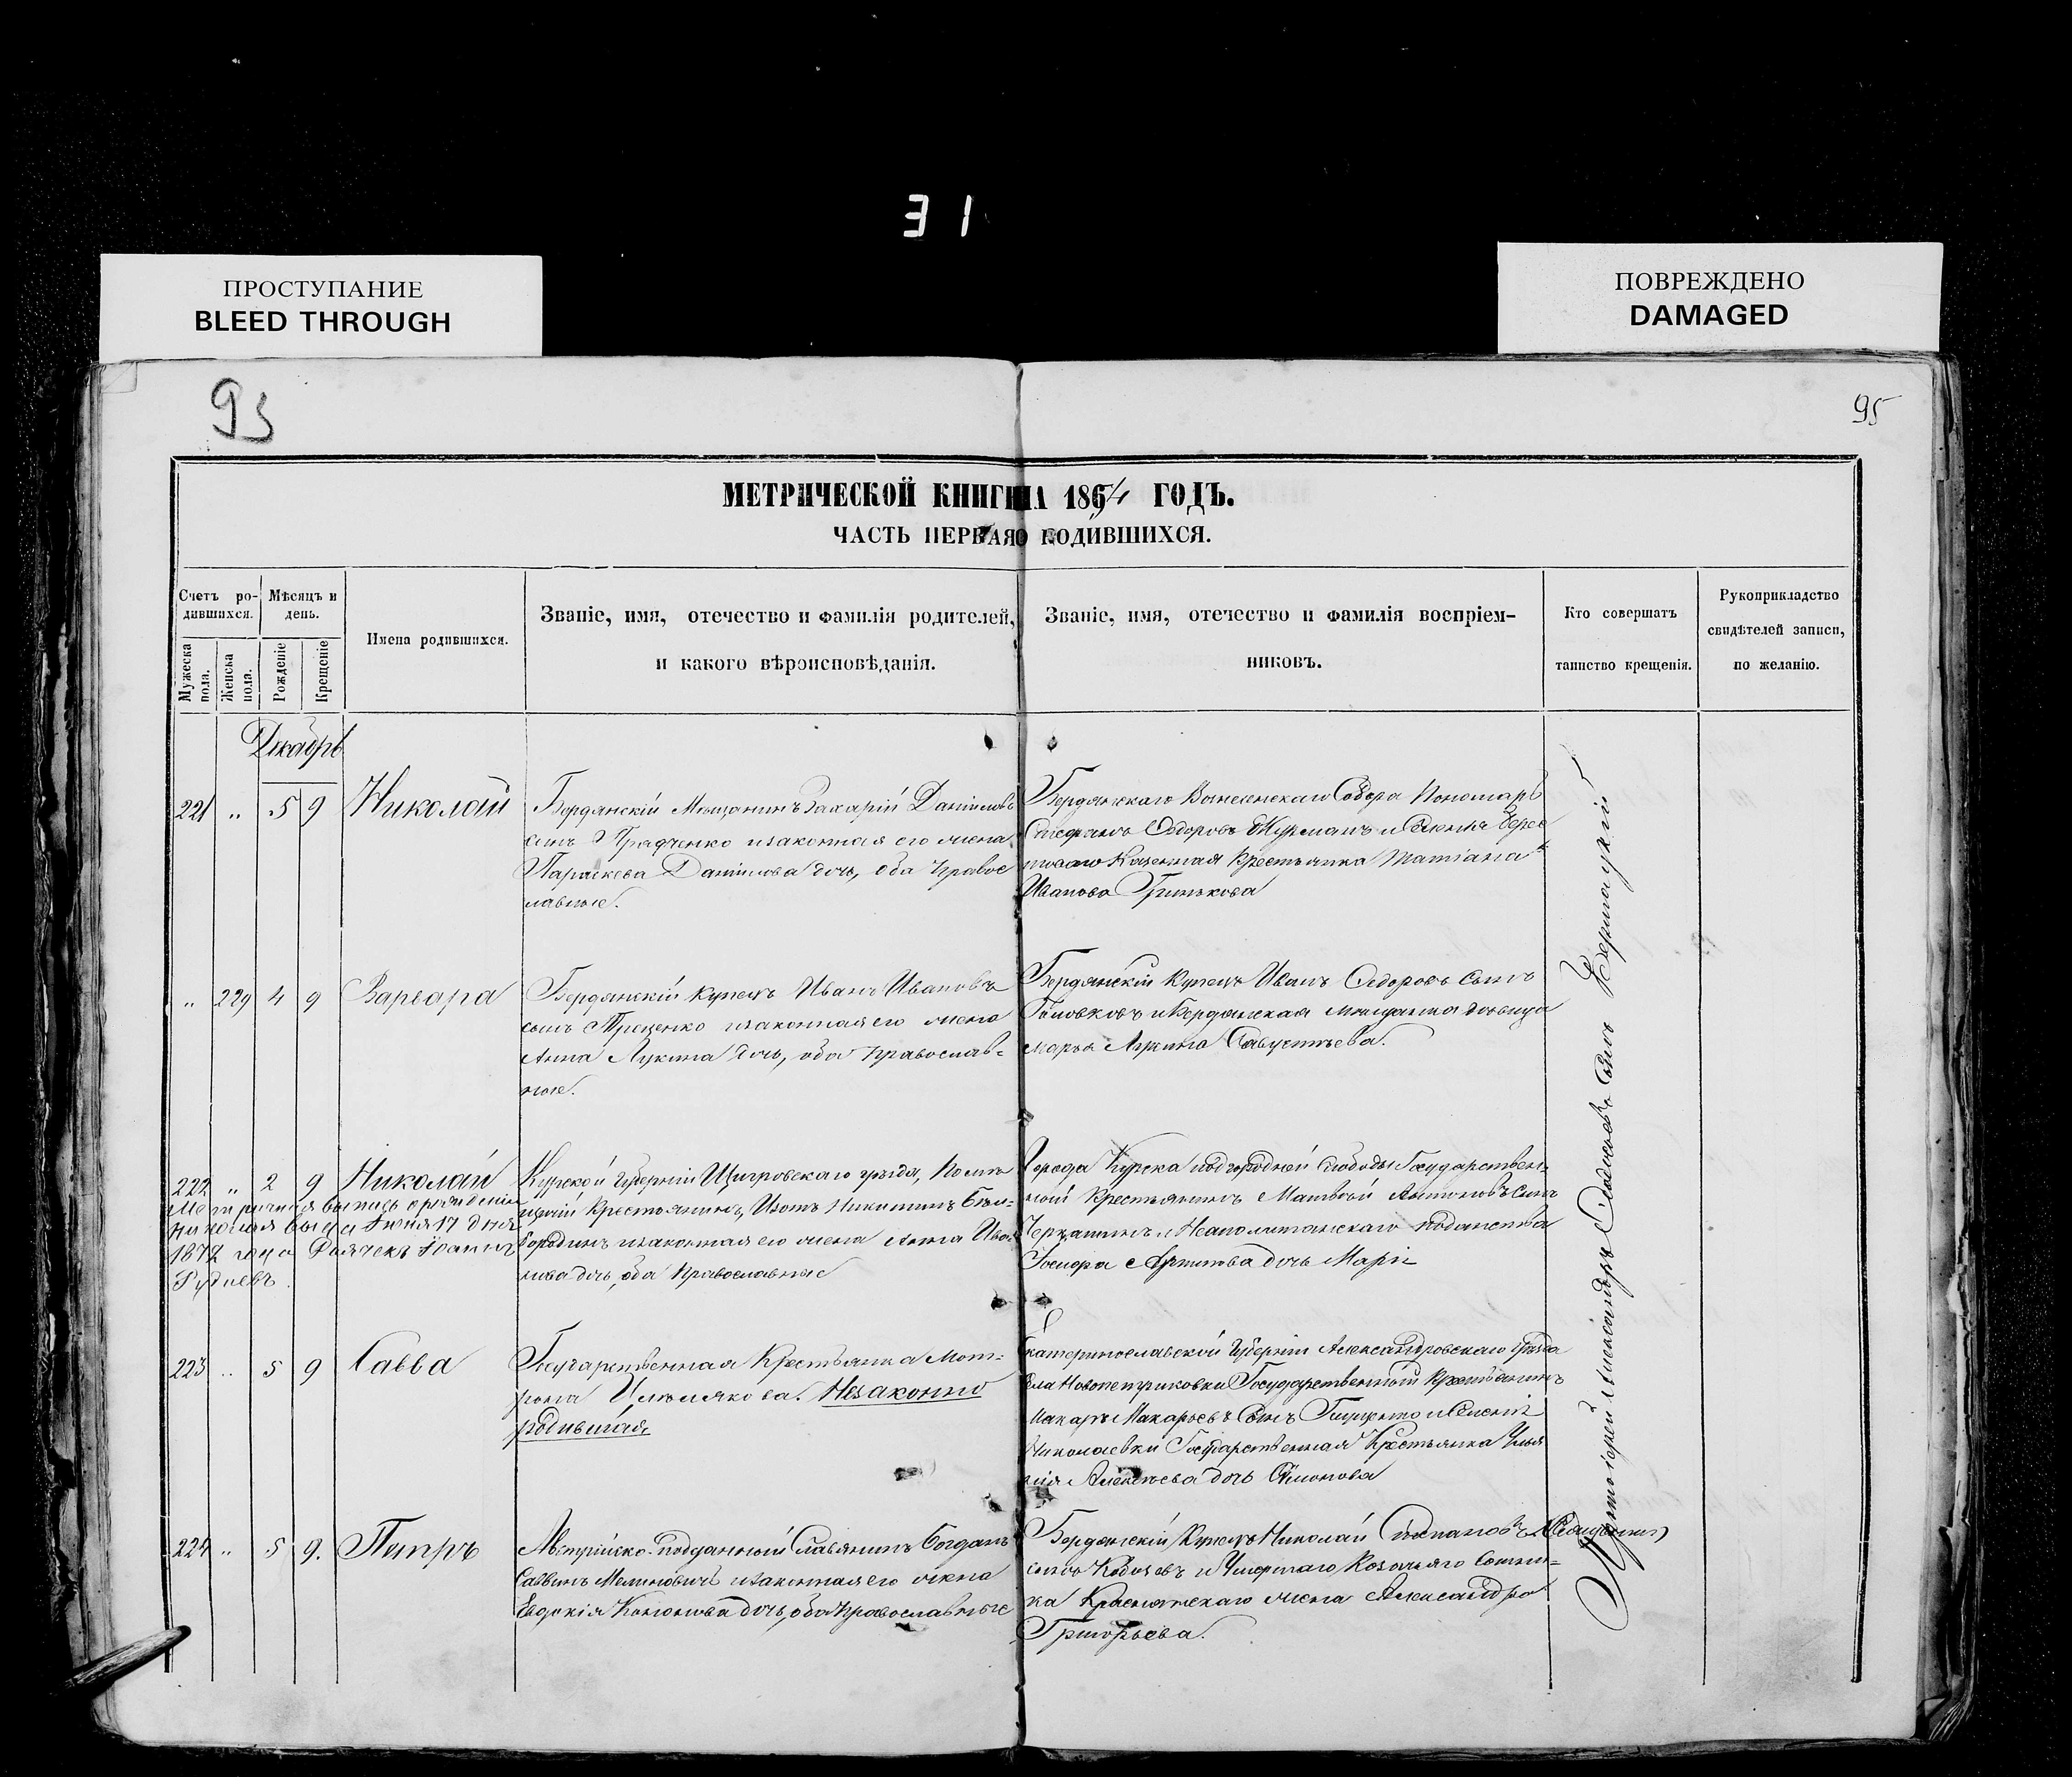 31
ПРОСТУПАНИЕ
BLEED THROUGH
ПОВРЕЖДЕНО
DAMAGED
95
95
МЕТРИЧЕСКОЙ КНИГИ НА 1864 ГОДЪ.
ЧАСТЬ ПЕРВАЯ О РОДИВШИХСЯ.
Счетъ ро-
дившихся.
Мужеска пола.
Женска пола.
Мѣсяцъ и
день.
Рожденіе
Крещеніе
Имена родившихся.
Званіе, имя, отечество и фамилія родителей,
и какого вѣроисповѣданія.
Званіе, имя, отечество и фамилія воспріем-
никовъ.
Кто совершатъ
таинство крещенія.
Рукоприкладство
свидѣтелей записи,
по желанію.
Декабрь
221 " 5 9 Николай
Бердянскій Мѣщанинъ Захарій Даніиловъ
сынъ изаконная его жена
Параскева Даніилова дочь, оба православ
лавные.
Бердянскаго Вознесенскаго Собора Пономарь
Стефанъ Ѳедоровъ и
Казенная Крестьянка Татіана
Иванова Гринькова
" 229 4 9 Варвара
Бердянскій купецъ Иванъ Ивановъ
сынъ Проценко изаконная его жена
Анна Лукина дочь, оба православ-
ные.
Бердянскій Купецъ Иванъ Ѳедоровъ Сынъ
Головковъ и Бердянская мѣщанка дѣвица
Марья Лукина
222 " 2 9 Николай
Метричная выпись о рожденіи
Николая выдана Іюня 17 дня
1872 года Іоаннъ
Рудневъ.
Курской Губерніи Щигровскаго уѣзда, Помѣ-
щичій Крестьянинъ, Изотъ Никитинъ Бѣл-
городинъ изаконная его жена Анна Ива-
нова дочь, оба Православные
Города Курска подгородней слободы Государствен-
ный Крестьянинъ Матвѣй Антоновъ Сынъ
и Неаполитанскаго подданства
дочь Марія
223 " 5 9 Савва
Государственная Крестьянка Мат-
рона Незаконно
родившая.
Екатеринославской Губерніи Александровскаго уѣзда
села Новопетриковки Государственный Крестьянинъ
Макаръ Макарьевъ Сынъ и Селенія
Николаевки Государственная Крестьянка Улья
нія Алексѣева дочь Симонова
224 " 5 9. Петръ
Австрійско-подданный Славянинъ Богданъ
Саввинъ изаконная его жена
Евдокія дочь, оба православные
Бердянскій Купецъ Николай Стефановъ
сынъ Кобозевъ и Умершаго Казачьяго Сотни-
ка жена Александра
Григорьева.
Протоіерей Александръ Ѳедосѣевъ сынъ